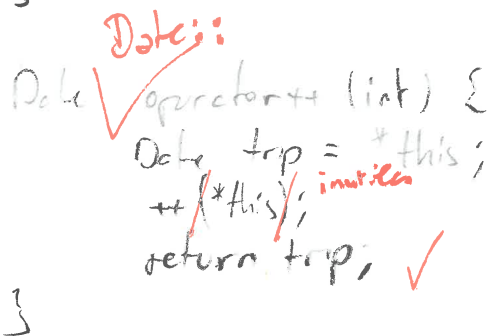 Date::
Date operator++ (int) {
Date trp = *this;
inutiles
++(*this);
return trp;
}